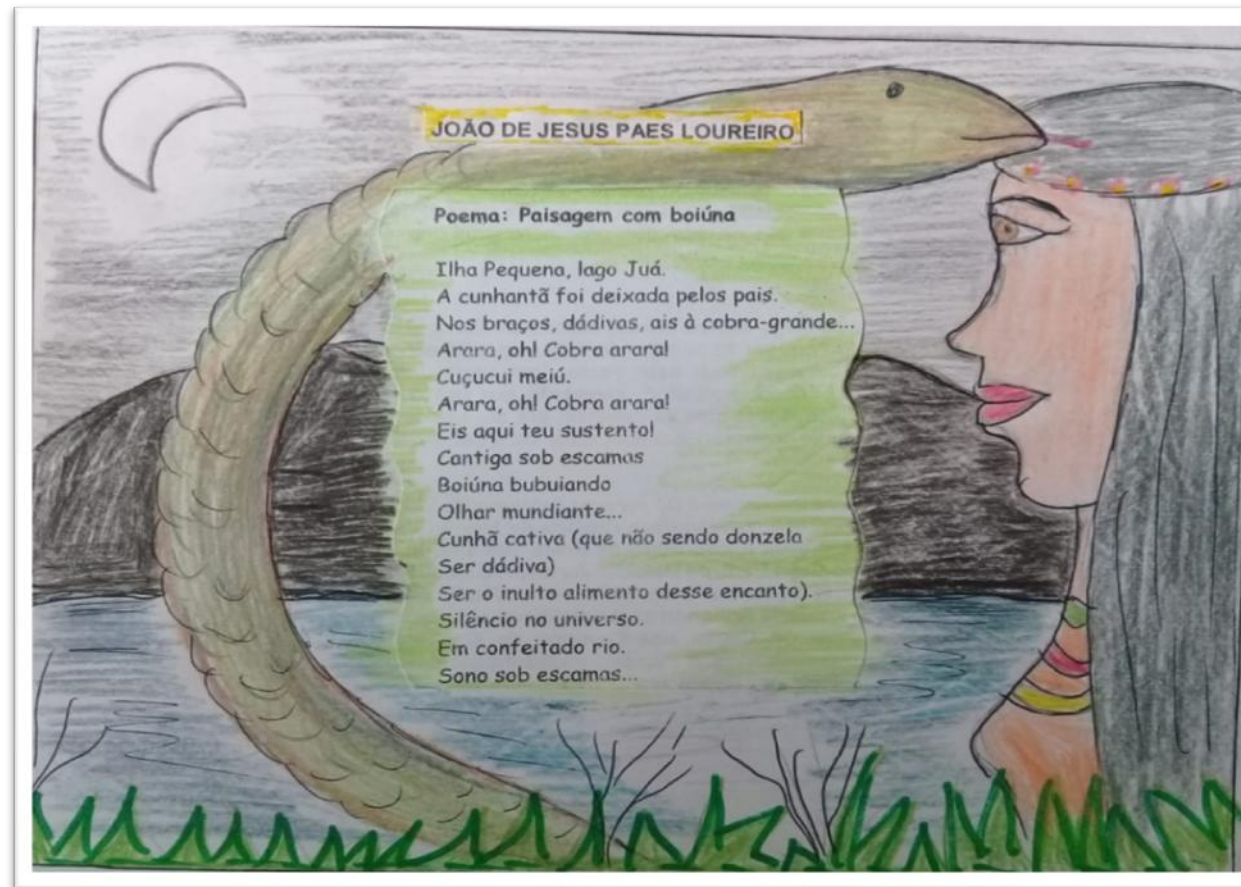 JOÃO DE JESUS PAES LOUREIRO
Poema: Paisagem com boiúna
Ilha Pequena, lago Juá.
A cunhantã foi deixada pelos pais.
Nos braços, dádivas, ais à cobra-grande...
Arara, oh! Cobra arara!
Cuçucui meiú.
Arara, oh! Cobra arara!
Eis aqui teu sustento!
Cantiga sob escamas
Boiúna bubuiando
Olhar mundiante...
Cunhã cativa (que não sendo donzela
Ser dádiva)
Ser o inulto alimento desse encanto).
Silêncio no universo.
Em confeitado rio.
Sono sob escamas...